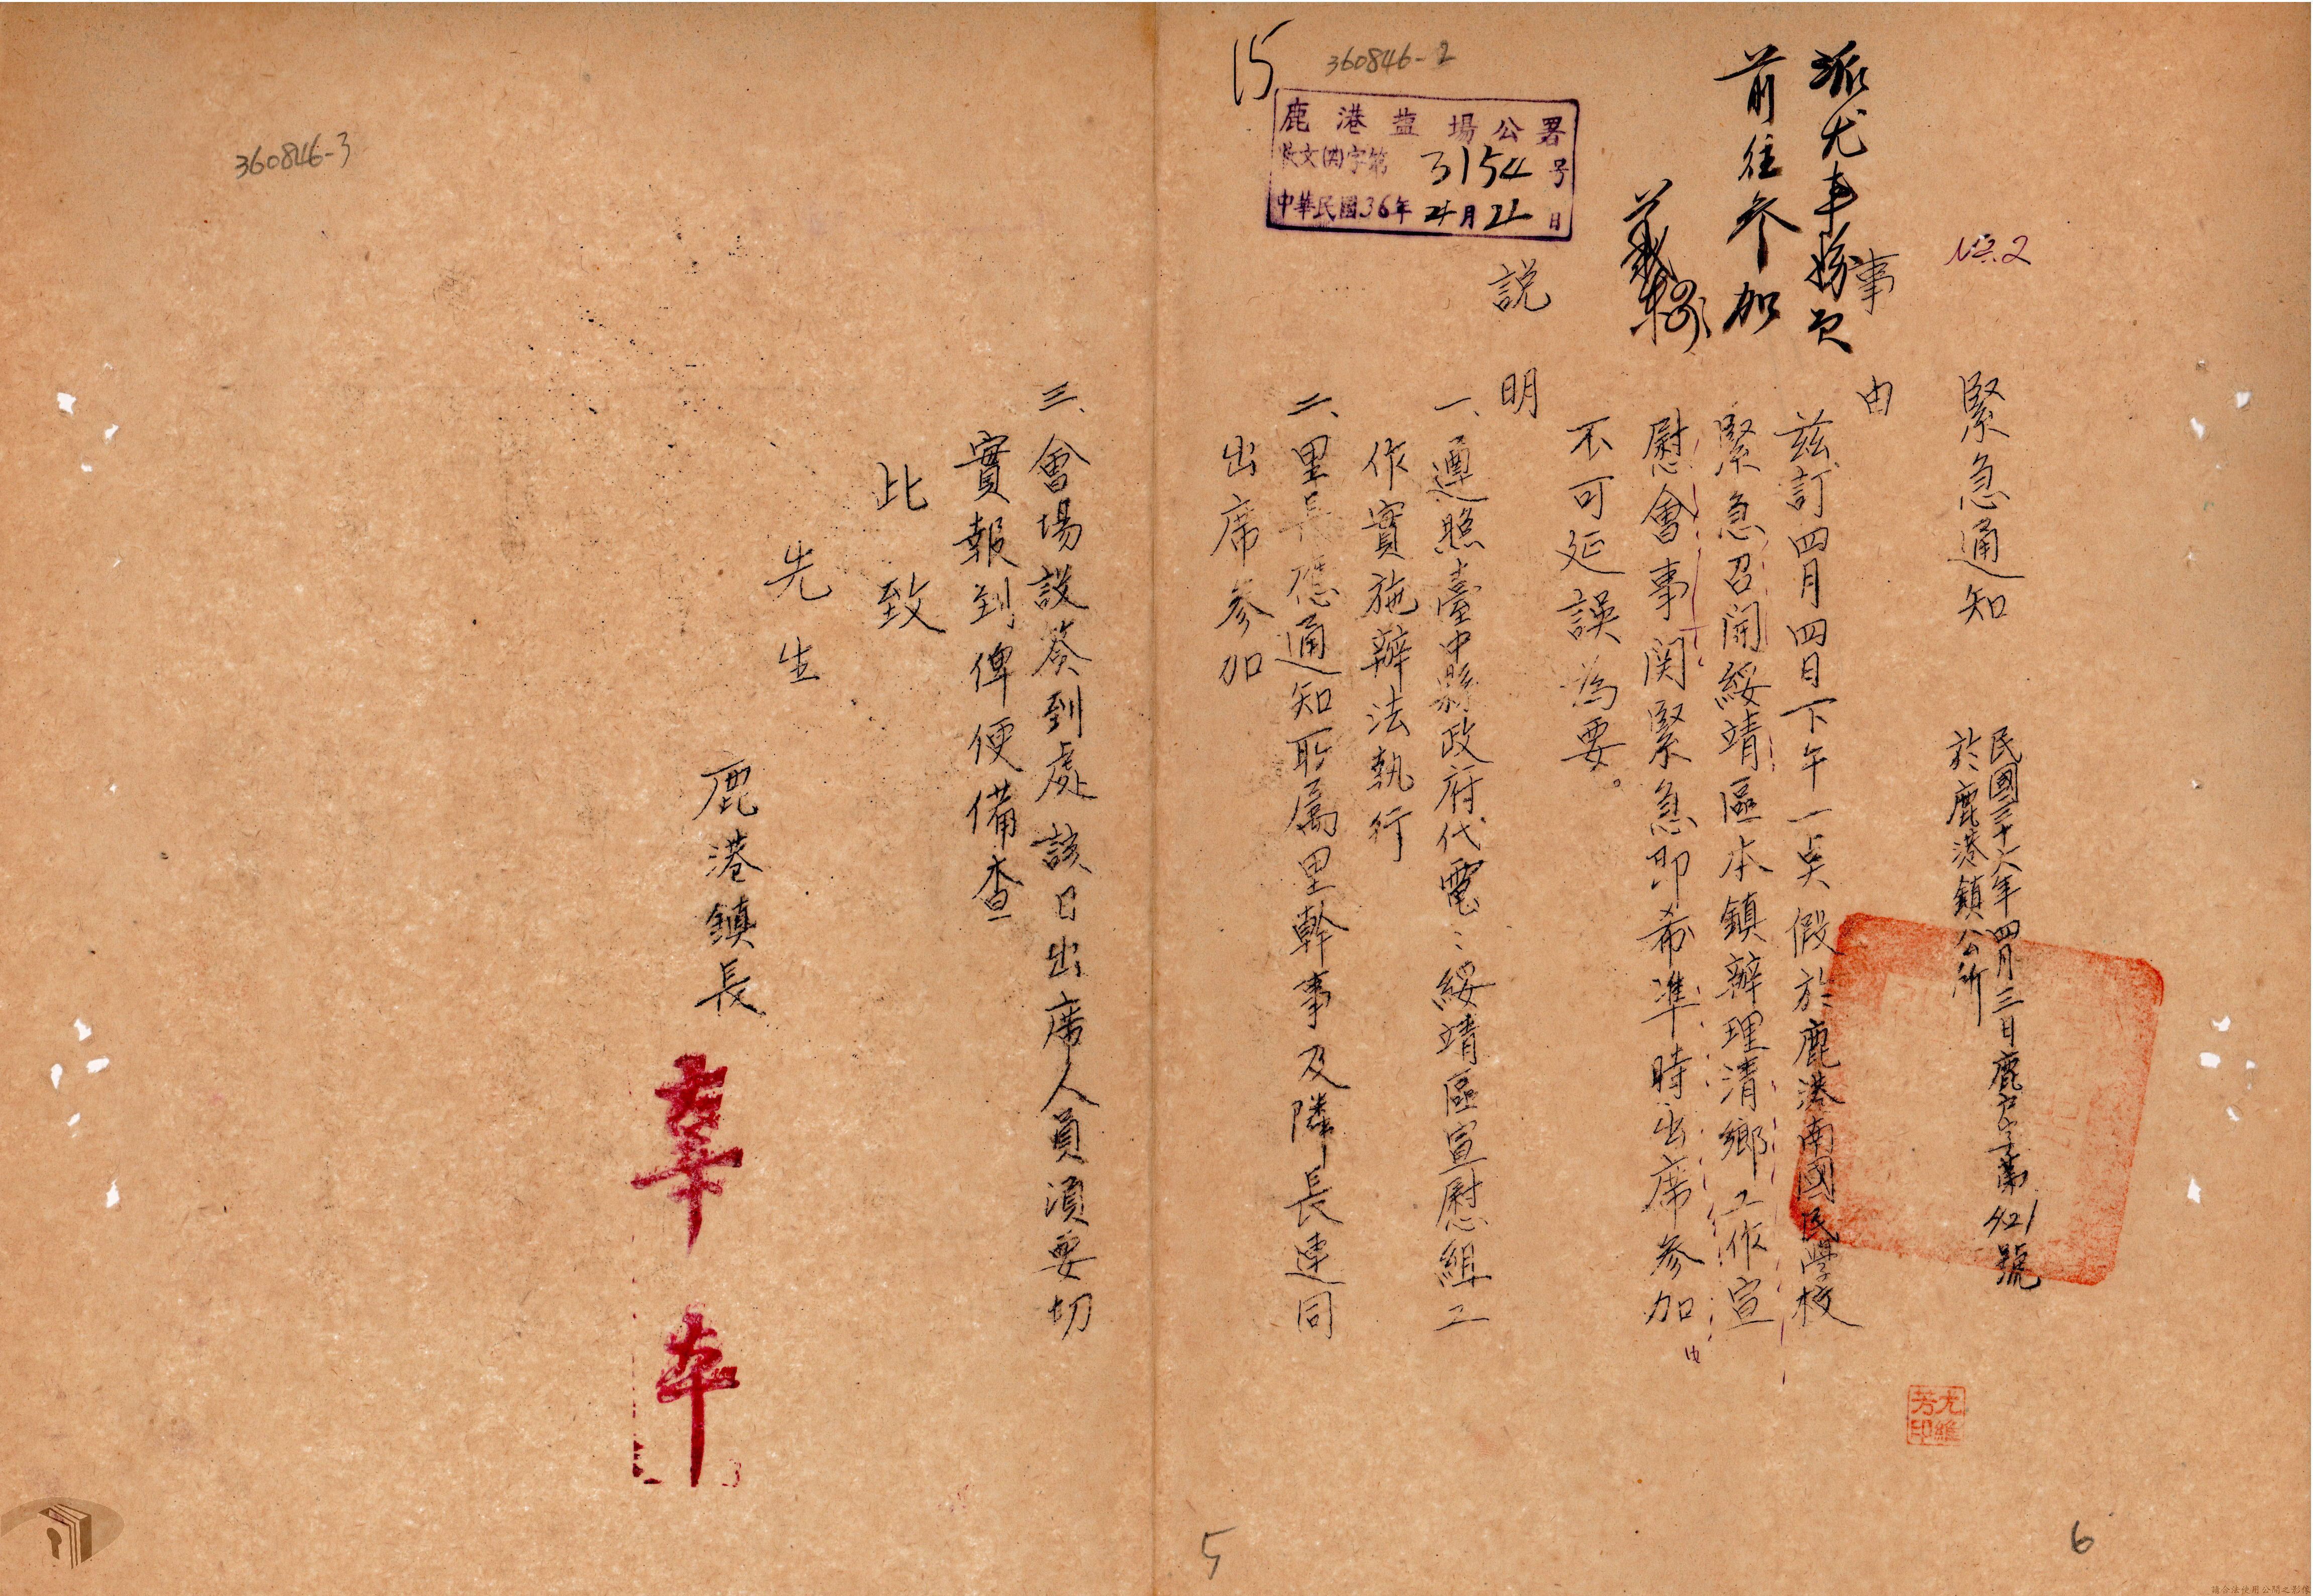 緊急通知
民國三十六年四月三日鹿戶字第421號
於鹿港鎮公所
NO.2
事由
茲訂四月四日下午一点假於鹿港南國民學校
緊急召開綏靖區本鎮辦理清鄉工作宣
慰會事関緊急即希準時出席參加
不可延誤為要。
說明
一、遵照臺中縣政府代電:綏靖區宣慰組工
作實施辦法執行
二、里長應通知所属里幹事及隣長連同
出席參加
三、會場設簽到處該日出席人員須要切
實報到俾便備查
此致
先生
鹿港鎮長
派尤
前往參加
15
360846-2
鹿港盐場公署
收文(卅六)字第3154号
中華民國36年4月22日
尤維芳印
360846-3
5
6
請合法使用公開之影像